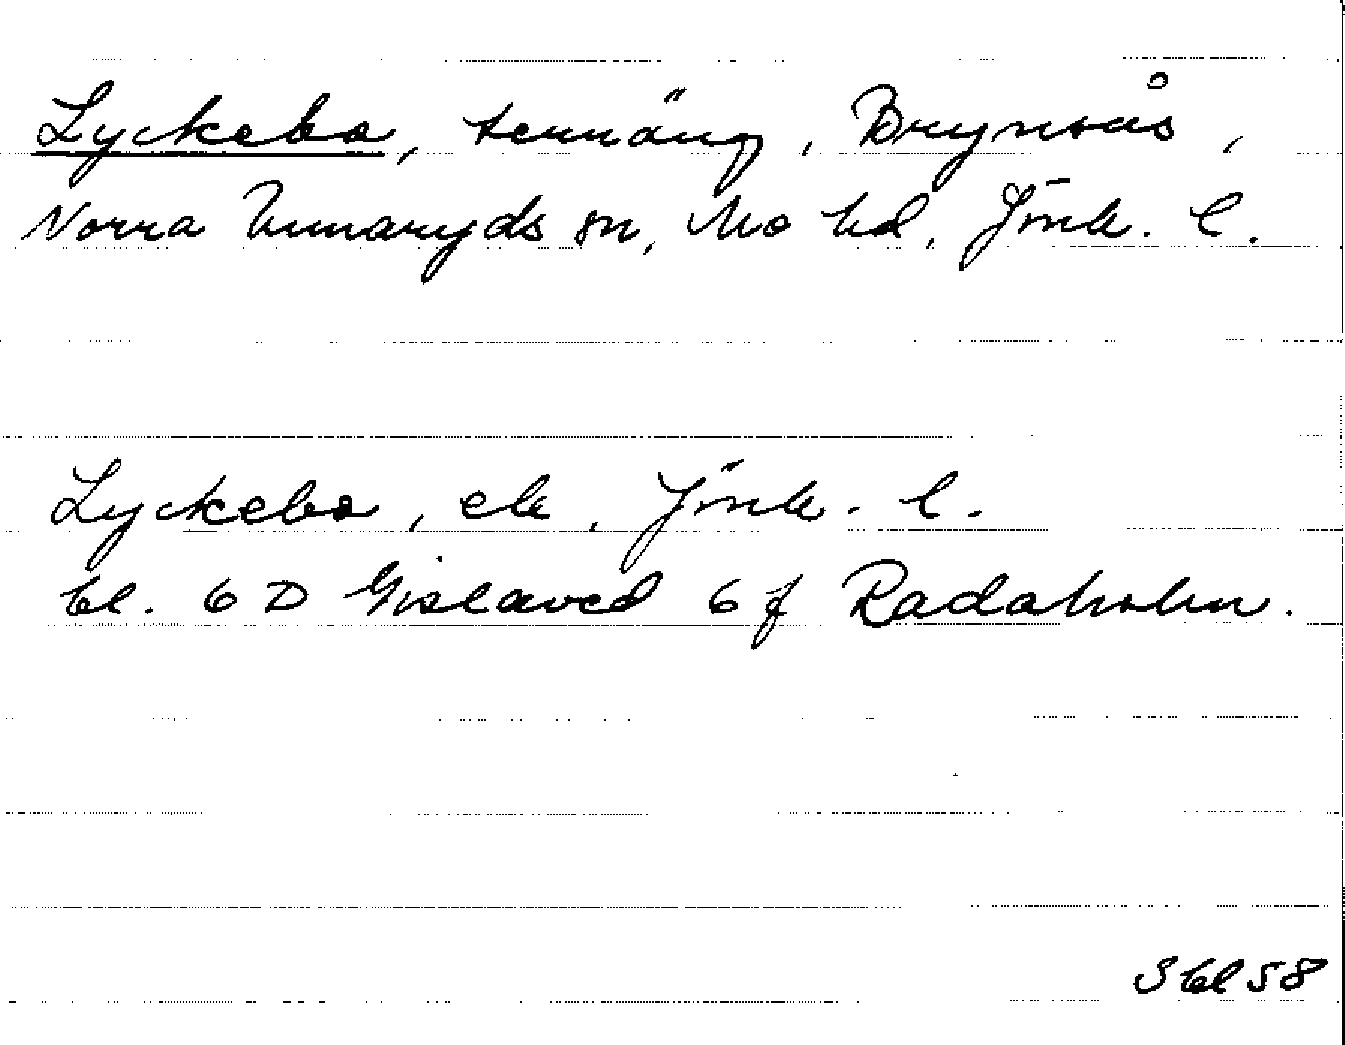 Lyckebo, terräng, Brynsås,
Norra Unnaryds sn, Mo hd, Jönk. l.
Lyckebo, ek, Jönk. l.
bl. 6 D Gislaved 6 f Radaholm.
S bl 58